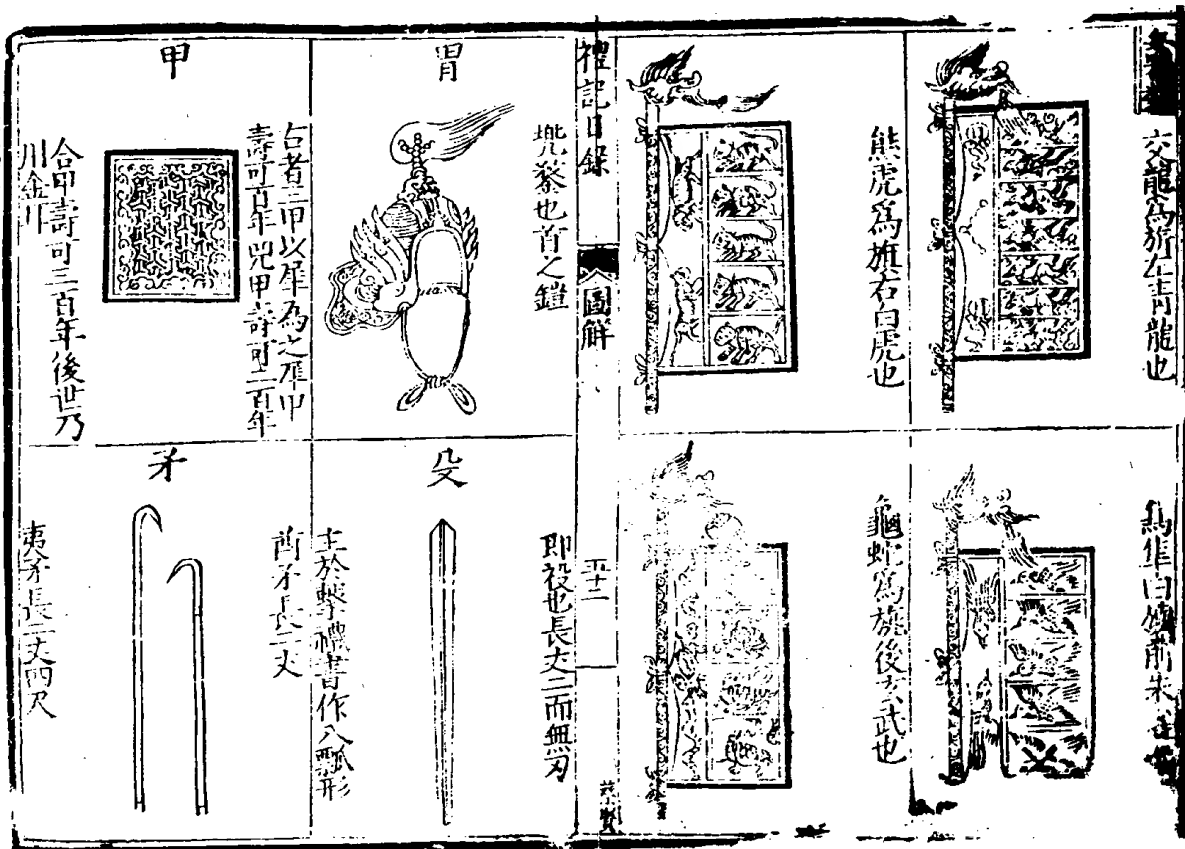 交龍為旂左青龍也
熊虎為旗右白虎也
鳥隼曰旟前朱雀
龜蛇為旐後玄武也
禮記目錄
圖解
五十二
冑
兜鍪也首之鎧
甲
古者三甲以犀為之犀甲
壽可百年兕甲壽可二百年
合甲壽可三百年後世乃
用金
殳
即祋也長丈二而無刃
主於擊禮書作八觚形
矛
酋矛長二丈
夷矛長二丈四尺